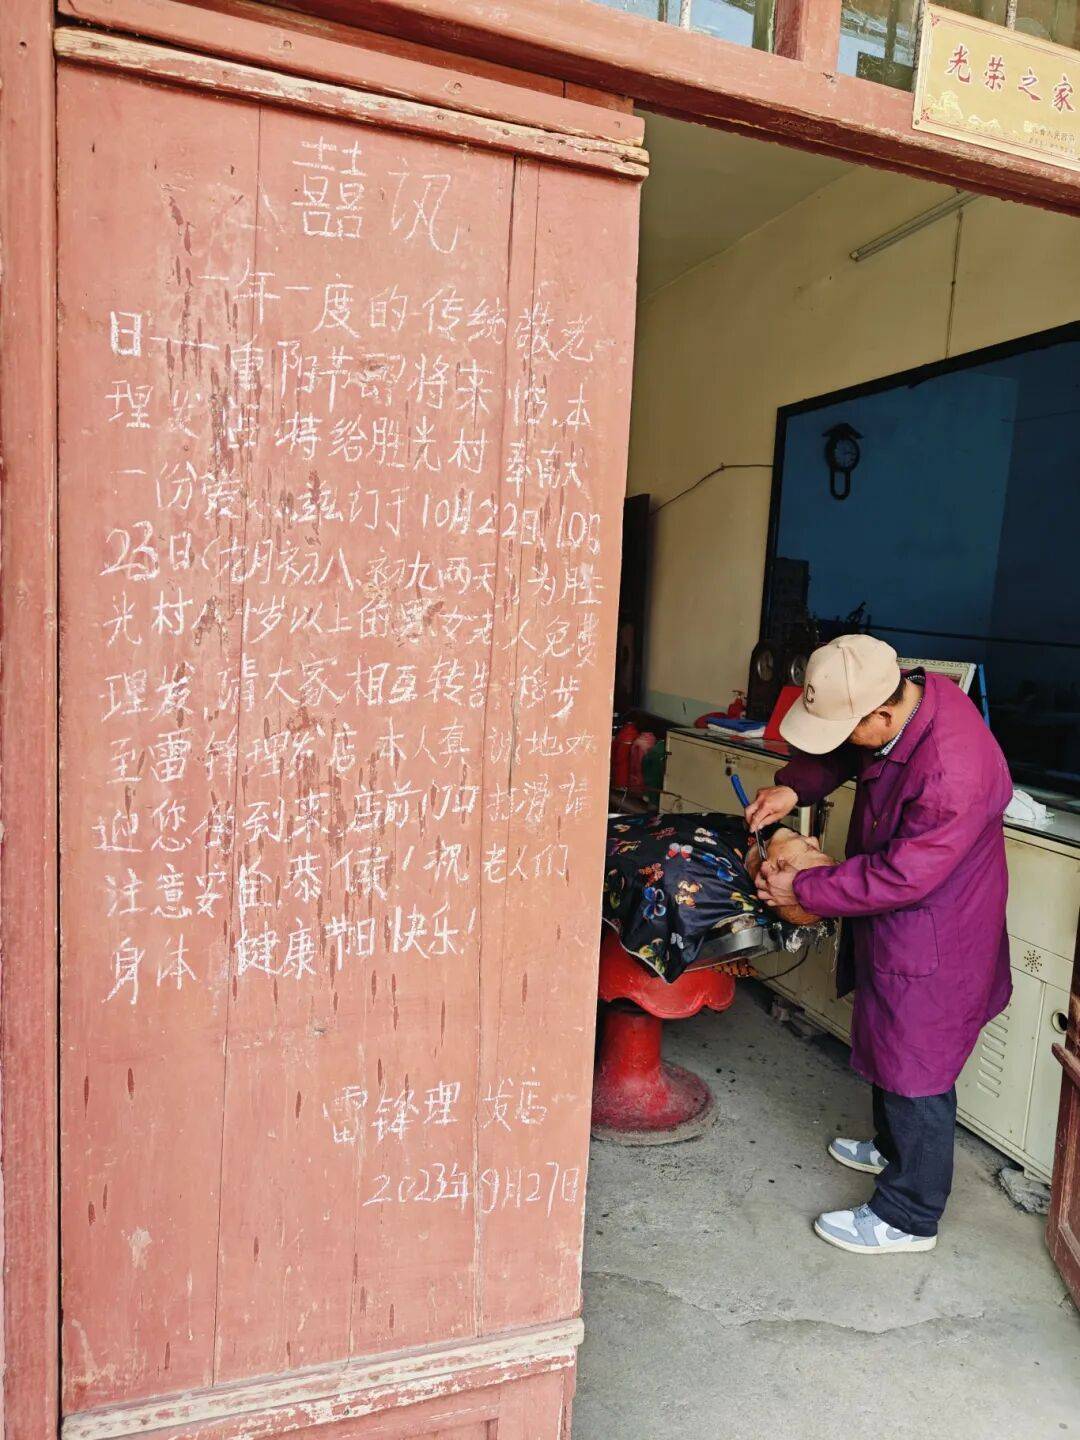 囍讯
一年一度的传统敬老
日——重阳节即将来临.本
理发店特给胜光村奉献
一份爱心.兹订于10月22日、10月
23日(九月初八、初九两天)为胜
光村八十岁以上的男女老人免费
理发,请大家相互转告.移步
至雷锋理发店.本人真诚地欢
迎您的到来.店前门口打滑请
注意安全.恭候!祝老人们
身体健康节日快乐!
雷锋理发店
2023年9月27日
光荣之家
C